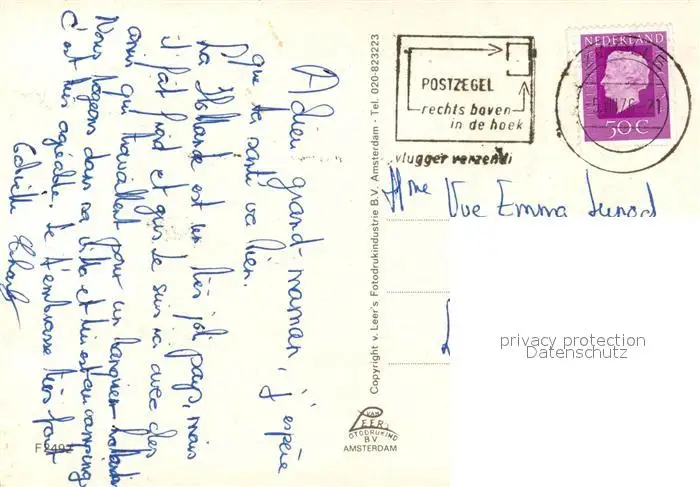 Adieu grand-maman, j'espère
que ta santé va bien.
La Hollande est un très joli pays, mais
il fait froid et gris. Je suis ici avec des
amis qui travaillent pour un banquier hollandais
Nous logeons dans sa villa et lui est au camping
C'est très agréable. Je t'embrasse très fort
F 2492
Copyright v. Leer's Fotodrukindustrie B.V. Amsterdam - Tel. 020-823223
VAN
LEER
FOTODRUKIND
B.V.
AMSTERDAM
POSTZEGEL
rechts boven
in de hoek
vlugger verzendi
NEDERLAND
50c
Mme Vve Emma Junod
privacy protection
Datenschutz